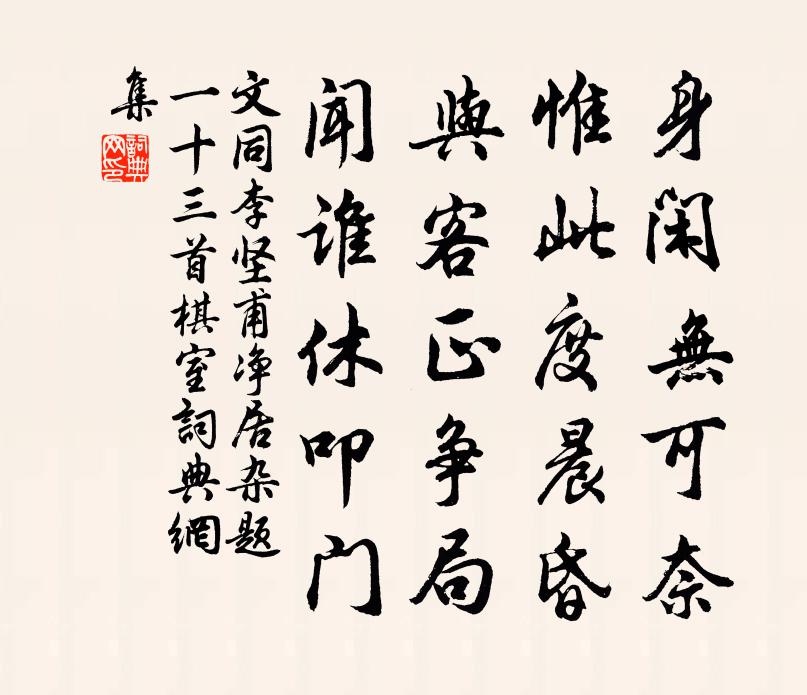 身闲無可奈
惟此度晨昏
與客正争局
闻谁休叩门
文同李坚甫净居杂题
一十三首棋室詞典網
集
詞典
网印